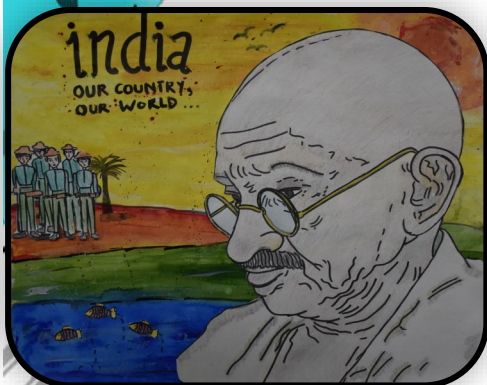 india
OUR COUNTRY,
OUR WORLD...